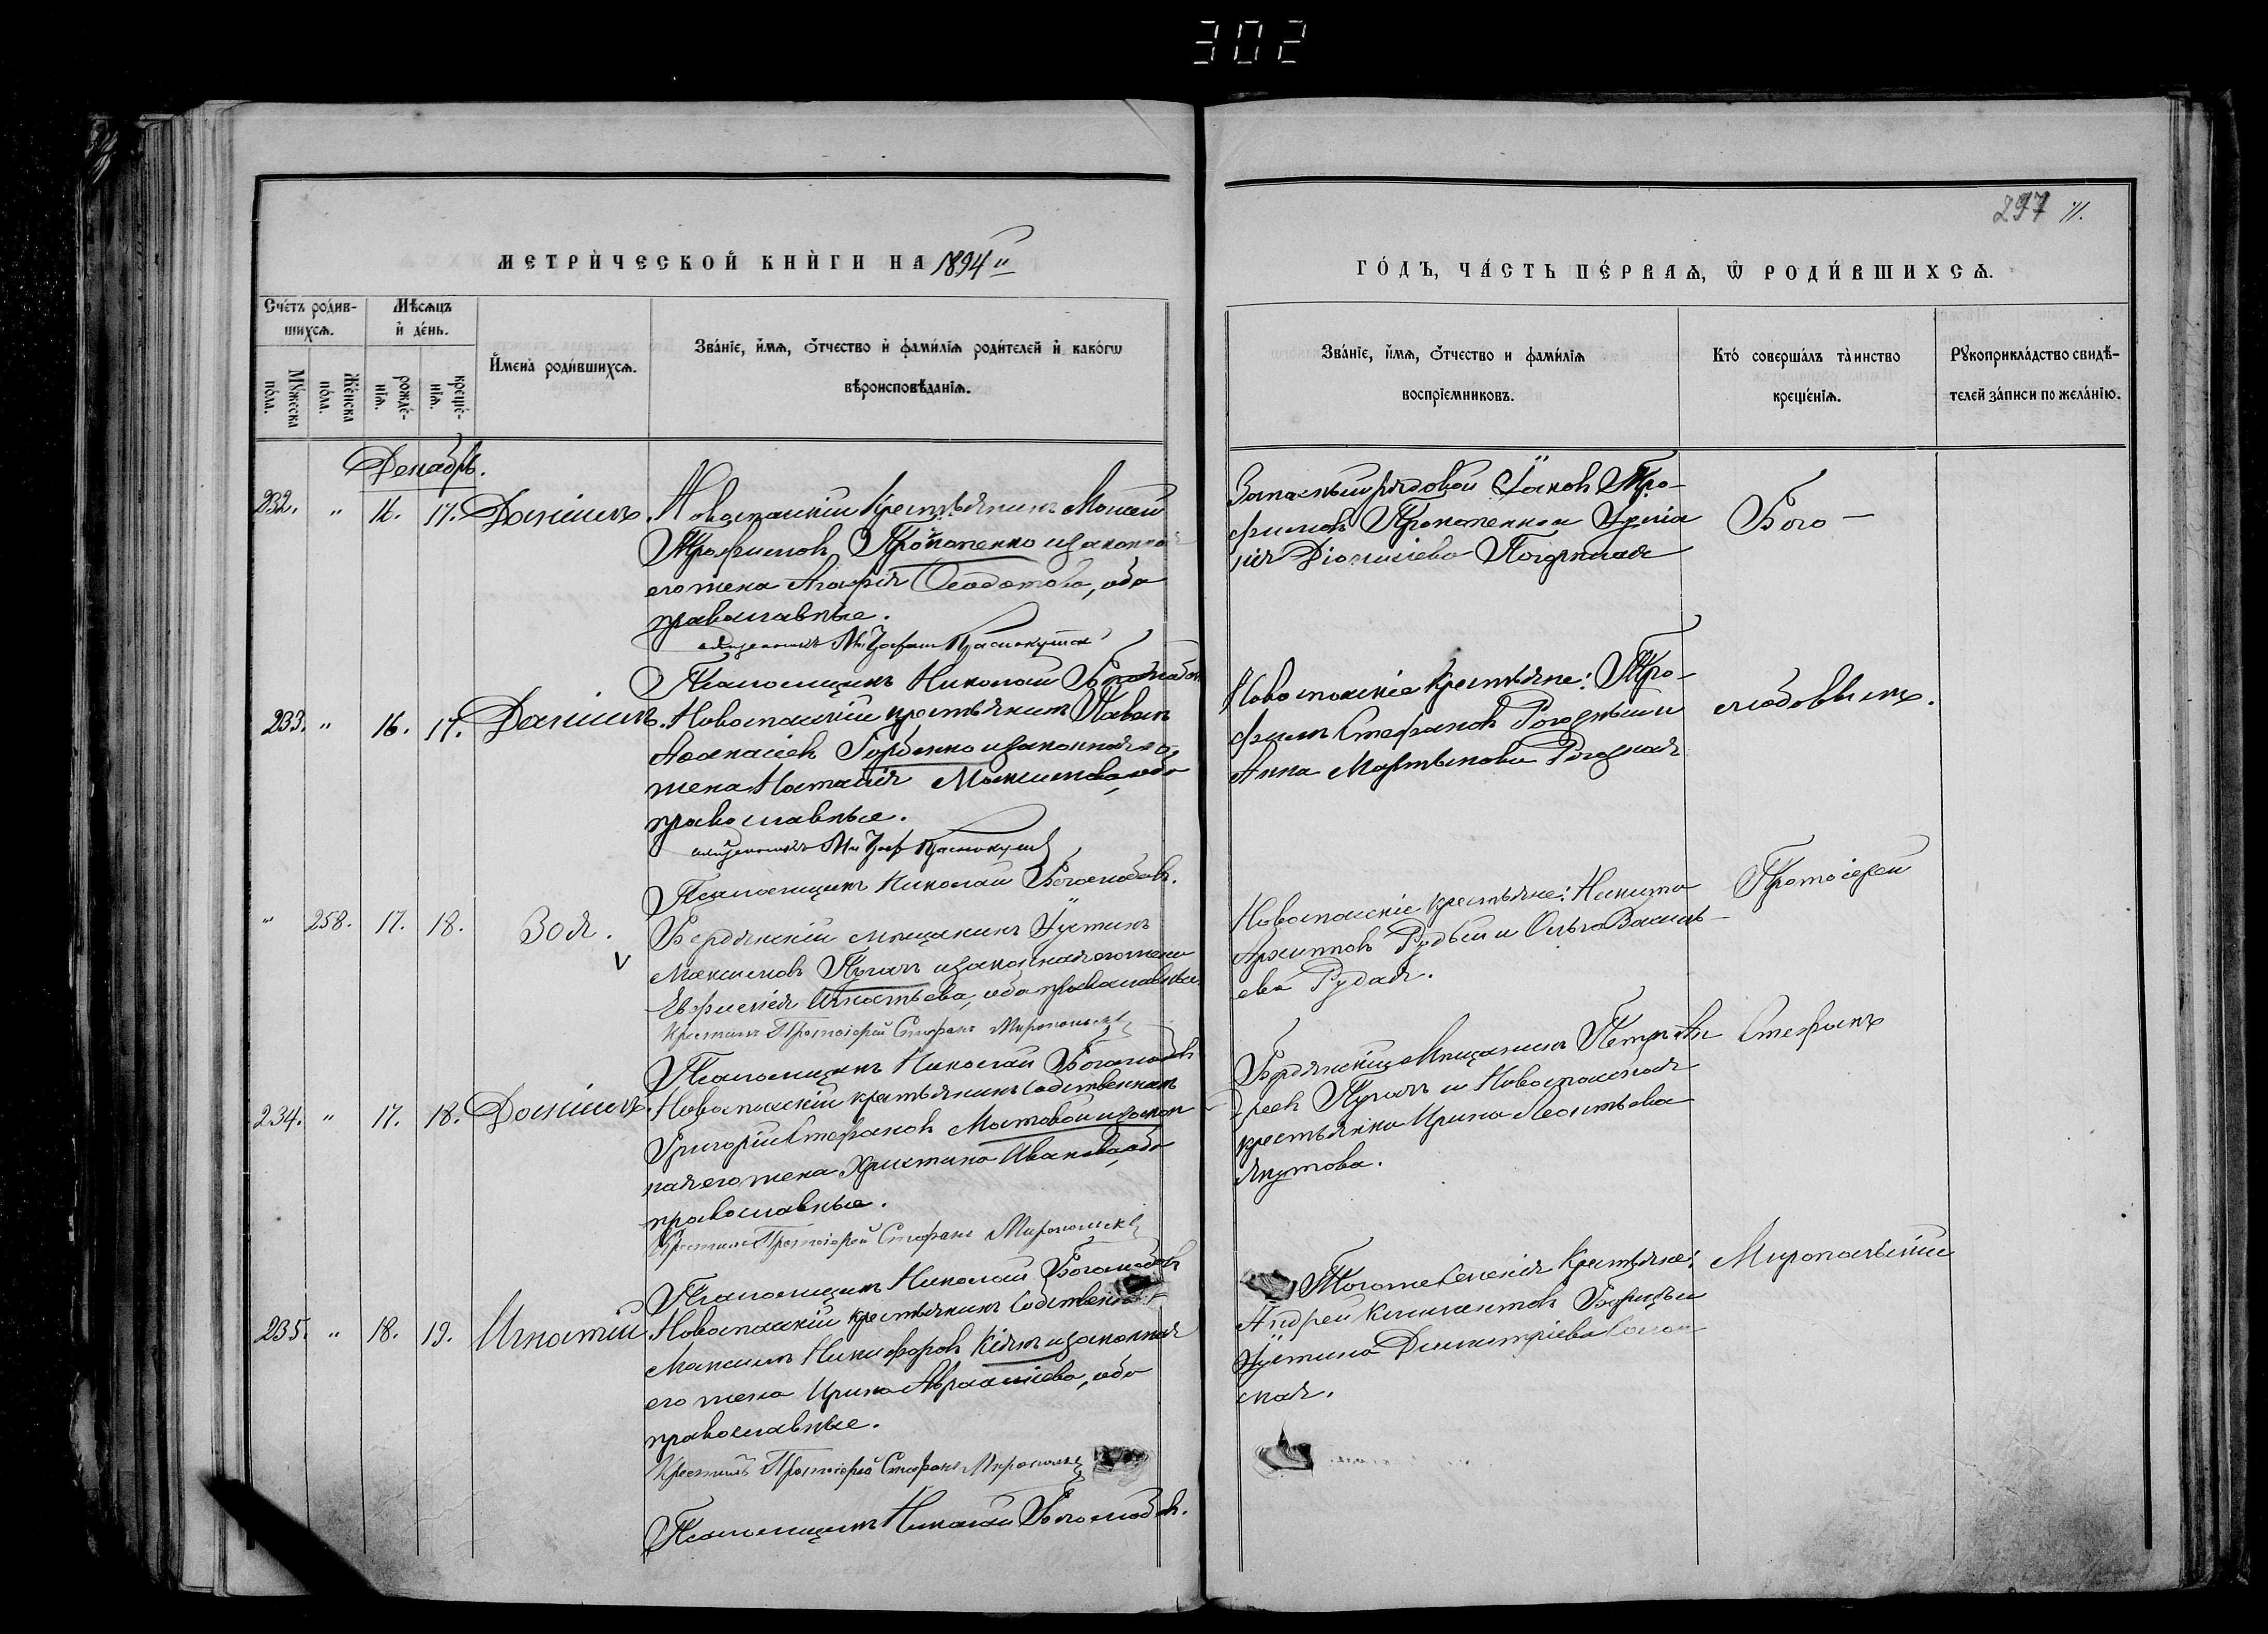 302
297 11.
МЕТРИ́ЧЕСКОЙ КНИ́ГИ НА 1894й
ГО́ДЪ, ЧА́СТЬ ПЕ́РВАѦ, Ѡ РОДИ́ВШИХСѦ.
Сче́тъ роди́в-
шихсѧ.
Мѣ́сѧцъ
и҆ де́нь.
Мꙋ́жеска
по́ла.
Же́нска
по́ла.
рожде́-
нїѧ.
креще́-
нїѧ.
И҆мена̀ роди́вшихсѧ.
Зва́нїе, и҆́мѧ, ѻ҆́тчество и҆ фами́лїѧ роди́телей и҆ како́гѡ
вѣроисповѣ́данїѧ.
Зва́нїе, и҆́мѧ, ѻ҆́тчество и фами́лїѧ
воспрїе́мниковъ.
Кто́ соверша́лъ та̀инство
креще́нїѧ.
Рꙋкоприкла́дство свидѣ́-
телей за́писи по жела́нїю.
Декабрь.
232. " 16. 17. Даніилъ.
Новоспаскій крестьянинъ Моисей
Трофимовъ Прокопенко и законная
его жена Агафія Ѳеодотова, оба
православные.
священникъ Митрофанъ Краснокутск
Псаломщикъ Николай Боголюбовъ
Запасный рядовой Іаковъ Тро-
фимовъ Прокопенко и
Діонисіева
Бого-
233. " 16. 17. Даніилъ.
Новоспаскій крестьянинъ Павелъ
Аѳанасіевъ Горбенко и законная его
жена Наталія Максимова, оба
православные.
священникъ Митроф Краснокутс
Псаломщикъ Николай Боголюбовъ.
Новоспаскіе крестьяне: Тро-
фимъ Стефановъ Рогозный и
Анна Мартынова Рогозная
любовымъ.
" 258. 17. 18. Зоя.
V
Бердянскій мѣщанинъ Іустинъ
Максимовъ Пугачъ и законная его жена
Евфимія Игнатьева, оба православные
Крестилъ Протоіерей Стефанъ Миропольскій
Псаломщикъ Николай Боголюбовъ
Новоспаскіе крестьяне: Никита
Архиповъ Рудый и Ольга Василь-
ева Рудая.
Протоіерей
234. " 17. 18. Даніилъ.
Новоспаскій крестьянинъ собственникъ
Григорій Стефановъ Мостовой и закон
ная его жена Христина Иванова, оба
православные.
Крестилъ Протоіерей Стефанъ Миропольскій
Псаломщикъ Николай Боголюбовъ
Бердянскій мѣщанинъ Петръ Ан
дреевъ Пугачъ и Новоспаская
крестьянка Ирина Леонтьева
Якутова.
Стефанъ
235. " 18. 19. Игнатій.
Новоспаскій крестьянинъ собственникъ
Максимъ Никифоровъ Кіянъ и законная
его жена Ирина Аврааміева, оба
православные.
Крестилъ Протоіерей Стефанъ Миропольск
Псаломщикъ Николай Боголюбовъ.
крестьяне:
Андрей Климентовъ
Іустина Димитріева
ская.
Миропольскій